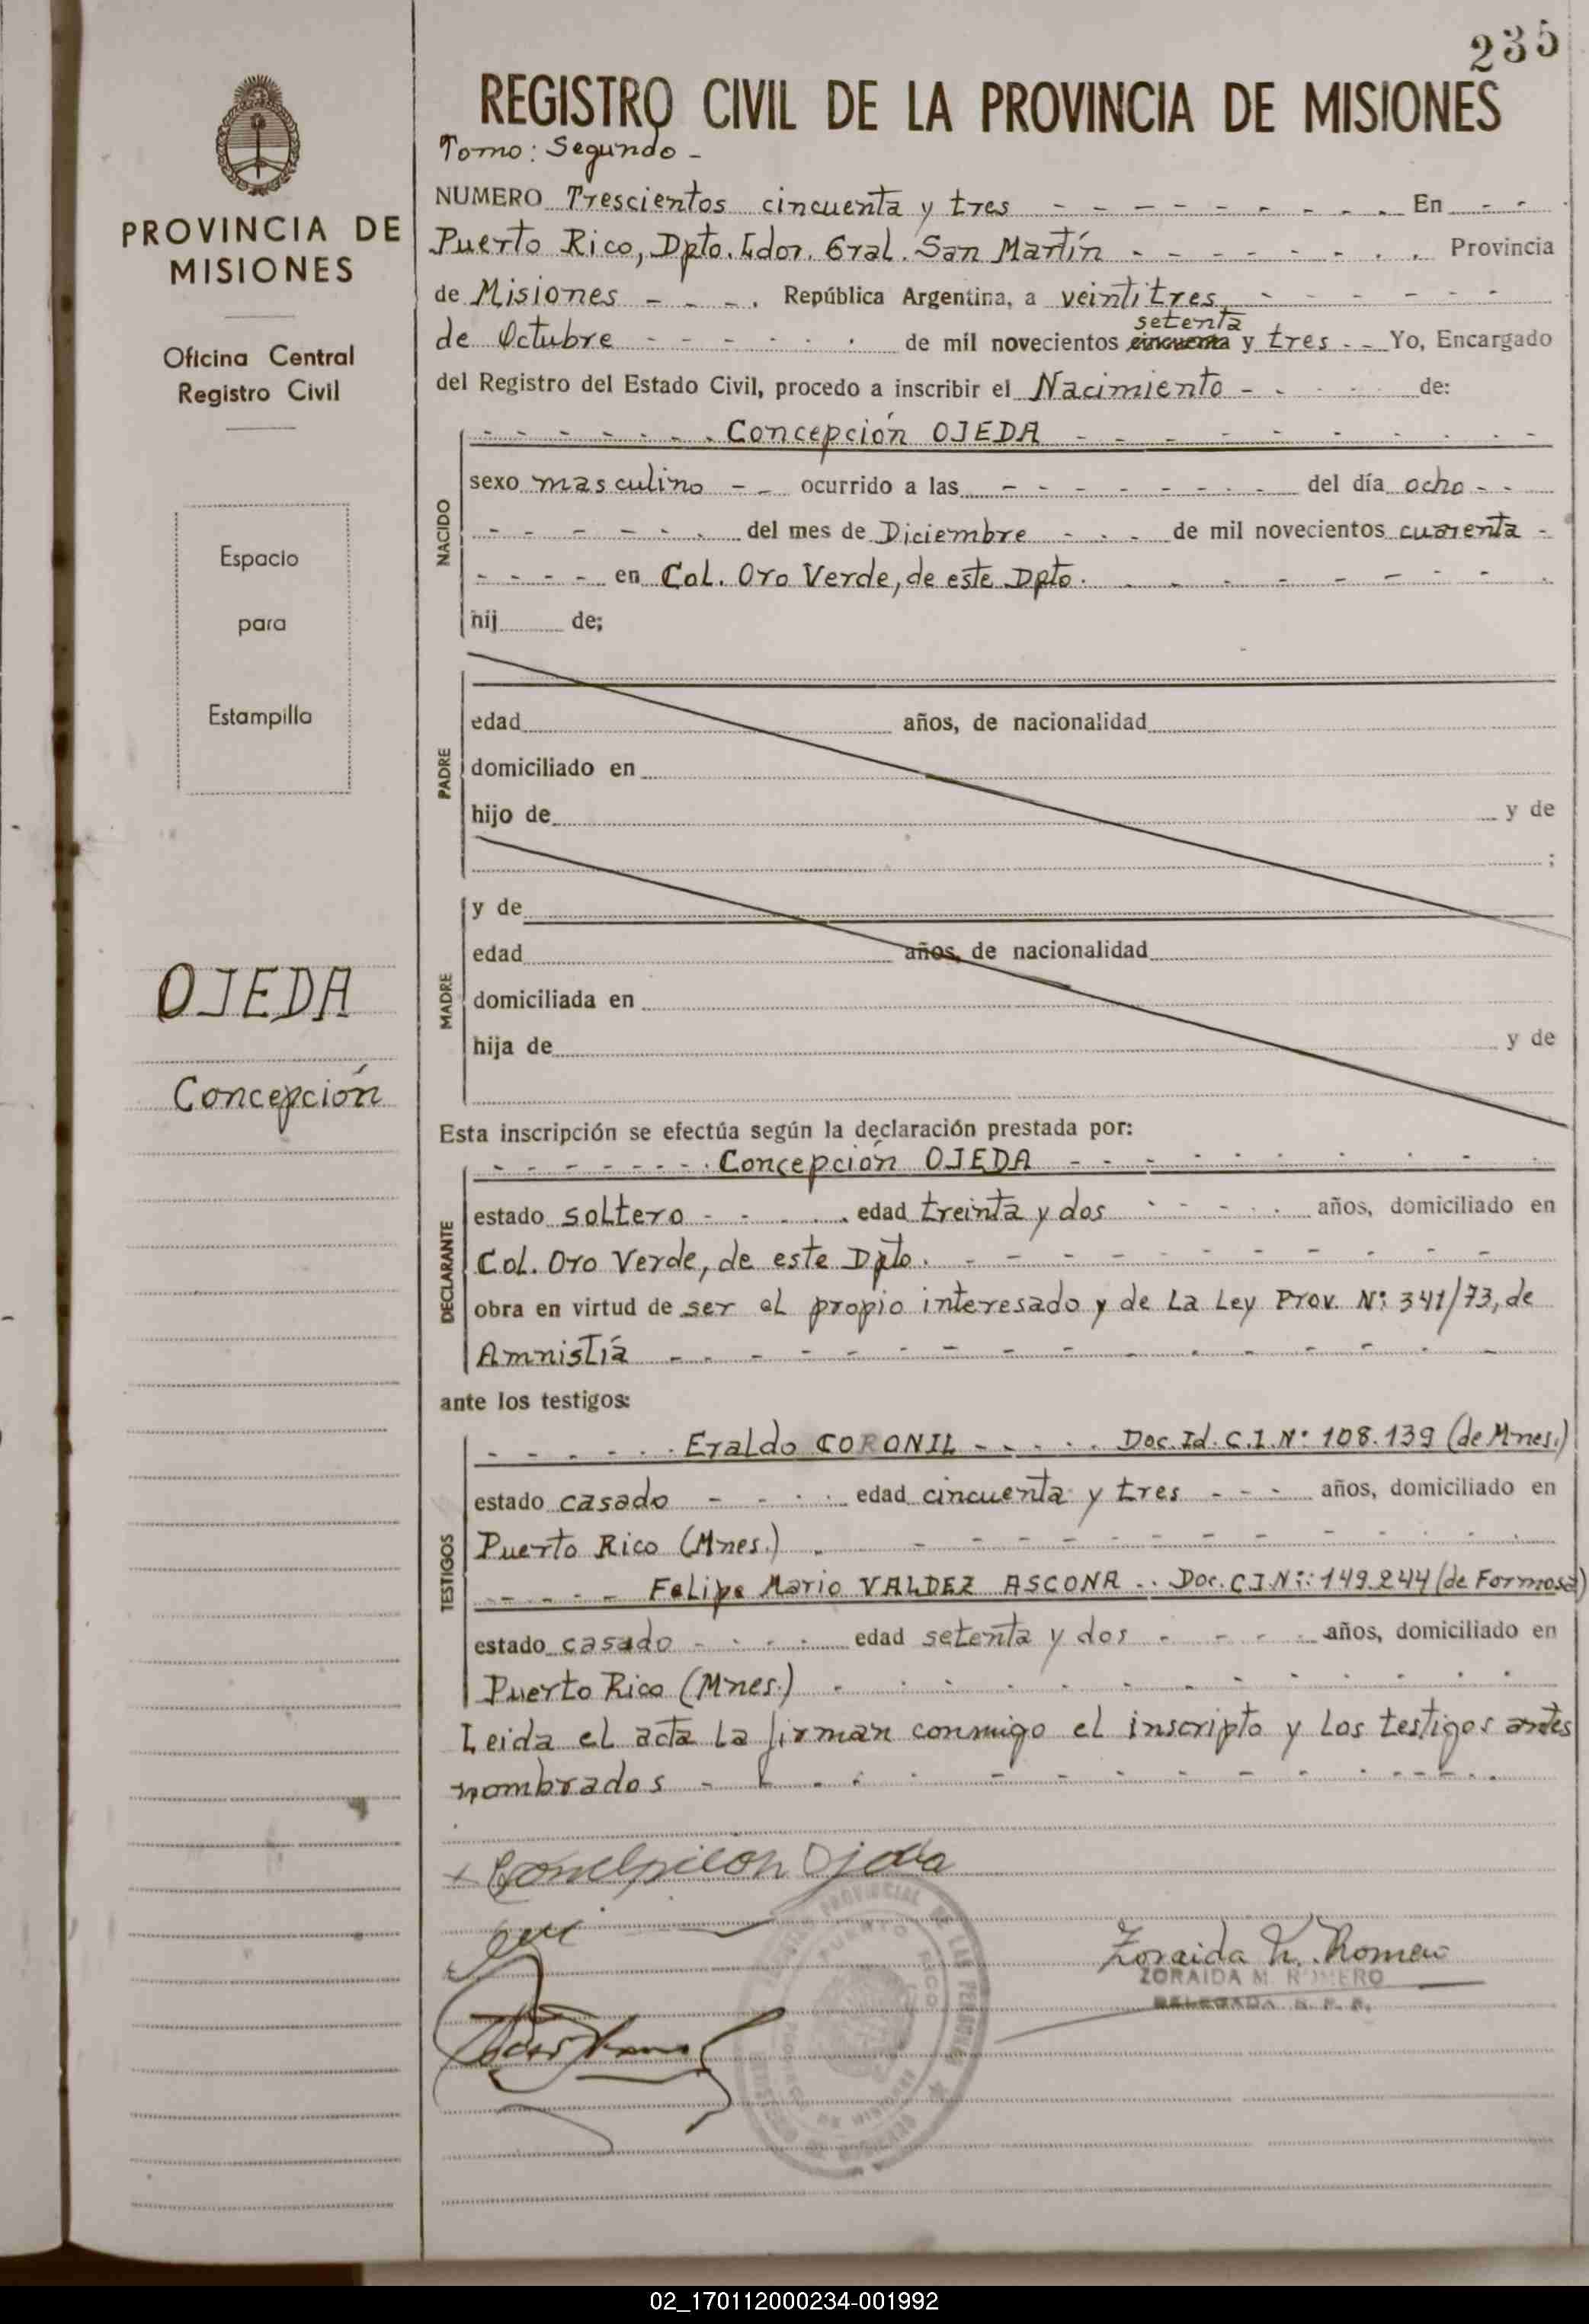 235
REGISTRO CIVIL DE LA PROVINCIA DE MISIONES
Tomo: Segundo -
PROVINCIA DE
MISIONES
Oficina Central
Registro Civil
Espacio
para
Estampilla
OJEDA
Concepción
NUMERO Trescientos cincuenta y tres - - - - - - - - - En - -
Puerto Rico, Dpto. Ldor. Gral. San Martín - - - - - - - - Provincia
de Misiones - - - . República Argentina, a veintitres - - - - - -
setenta
de Octubre - - - - - - de mil novecientos cincuenta y tres - - Yo, Encargado
del Registro del Estado Civil, procedo a inscribir el Nacimiento - - - - de:
- - - - - - - Concepción OJEDA - - - - - - - - - -
NACIDO
sexo masculino - - ocurrido a las - - - - - - - - del día ocho - -
- - - - - - del mes de Diciembre - - - de mil novecientos cuarenta -
- - - - en Col. Oro Verde, de este Dpto. - - - - - - - -
hij de;
PADRE
edad años, de nacionalidad
domiciliado en
hijo de y de
;
MADRE
y de
edad años, de nacionalidad
domiciliada en
hija de y de
Esta inscripción se efectúa según la declaración prestada por:
- - - - - - - Concepción OJEDA - - - - - - - -
DECLARANTE
estado soltero - - - - edad treinta y dos - - - - - años, domiciliado en
Col. Oro Verde, de este Dpto. - - - - - - - - -
obra en virtud de ser el propio interesado y de La Ley Prov. Nº: 341/73, de
Amnistía - - - - - - - - - - - -
ante los testigos:
TESTIGOS
- - - - - - Eraldo CORONIL - - - - - Doc. Id. C.I. Nº: 108.139 (de Mnes.)
estado casado - - - - edad cincuenta y tres - - - años, domiciliado en
Puerto Rico (Mnes.) - - - - - - - - - -
- - - - - Felipe Mario VALDEZ ASCONA - - Doc. C.I. Nº: 149.244 (de Formosa)
estado casado - - - - edad setenta y dos - - - - años, domiciliado en
Puerto Rico (Mnes.) - - - - - - - - - -
Leida el acta La firman conmigo el inscripto y Los testigos antes
nombrados - - - - - - - - - - -
+ Concepcion Ojeda
Zoraida M. Romero
ZORAIDA M. ROMERO
DELEGADA R. P. P.
02_170112000234-001992